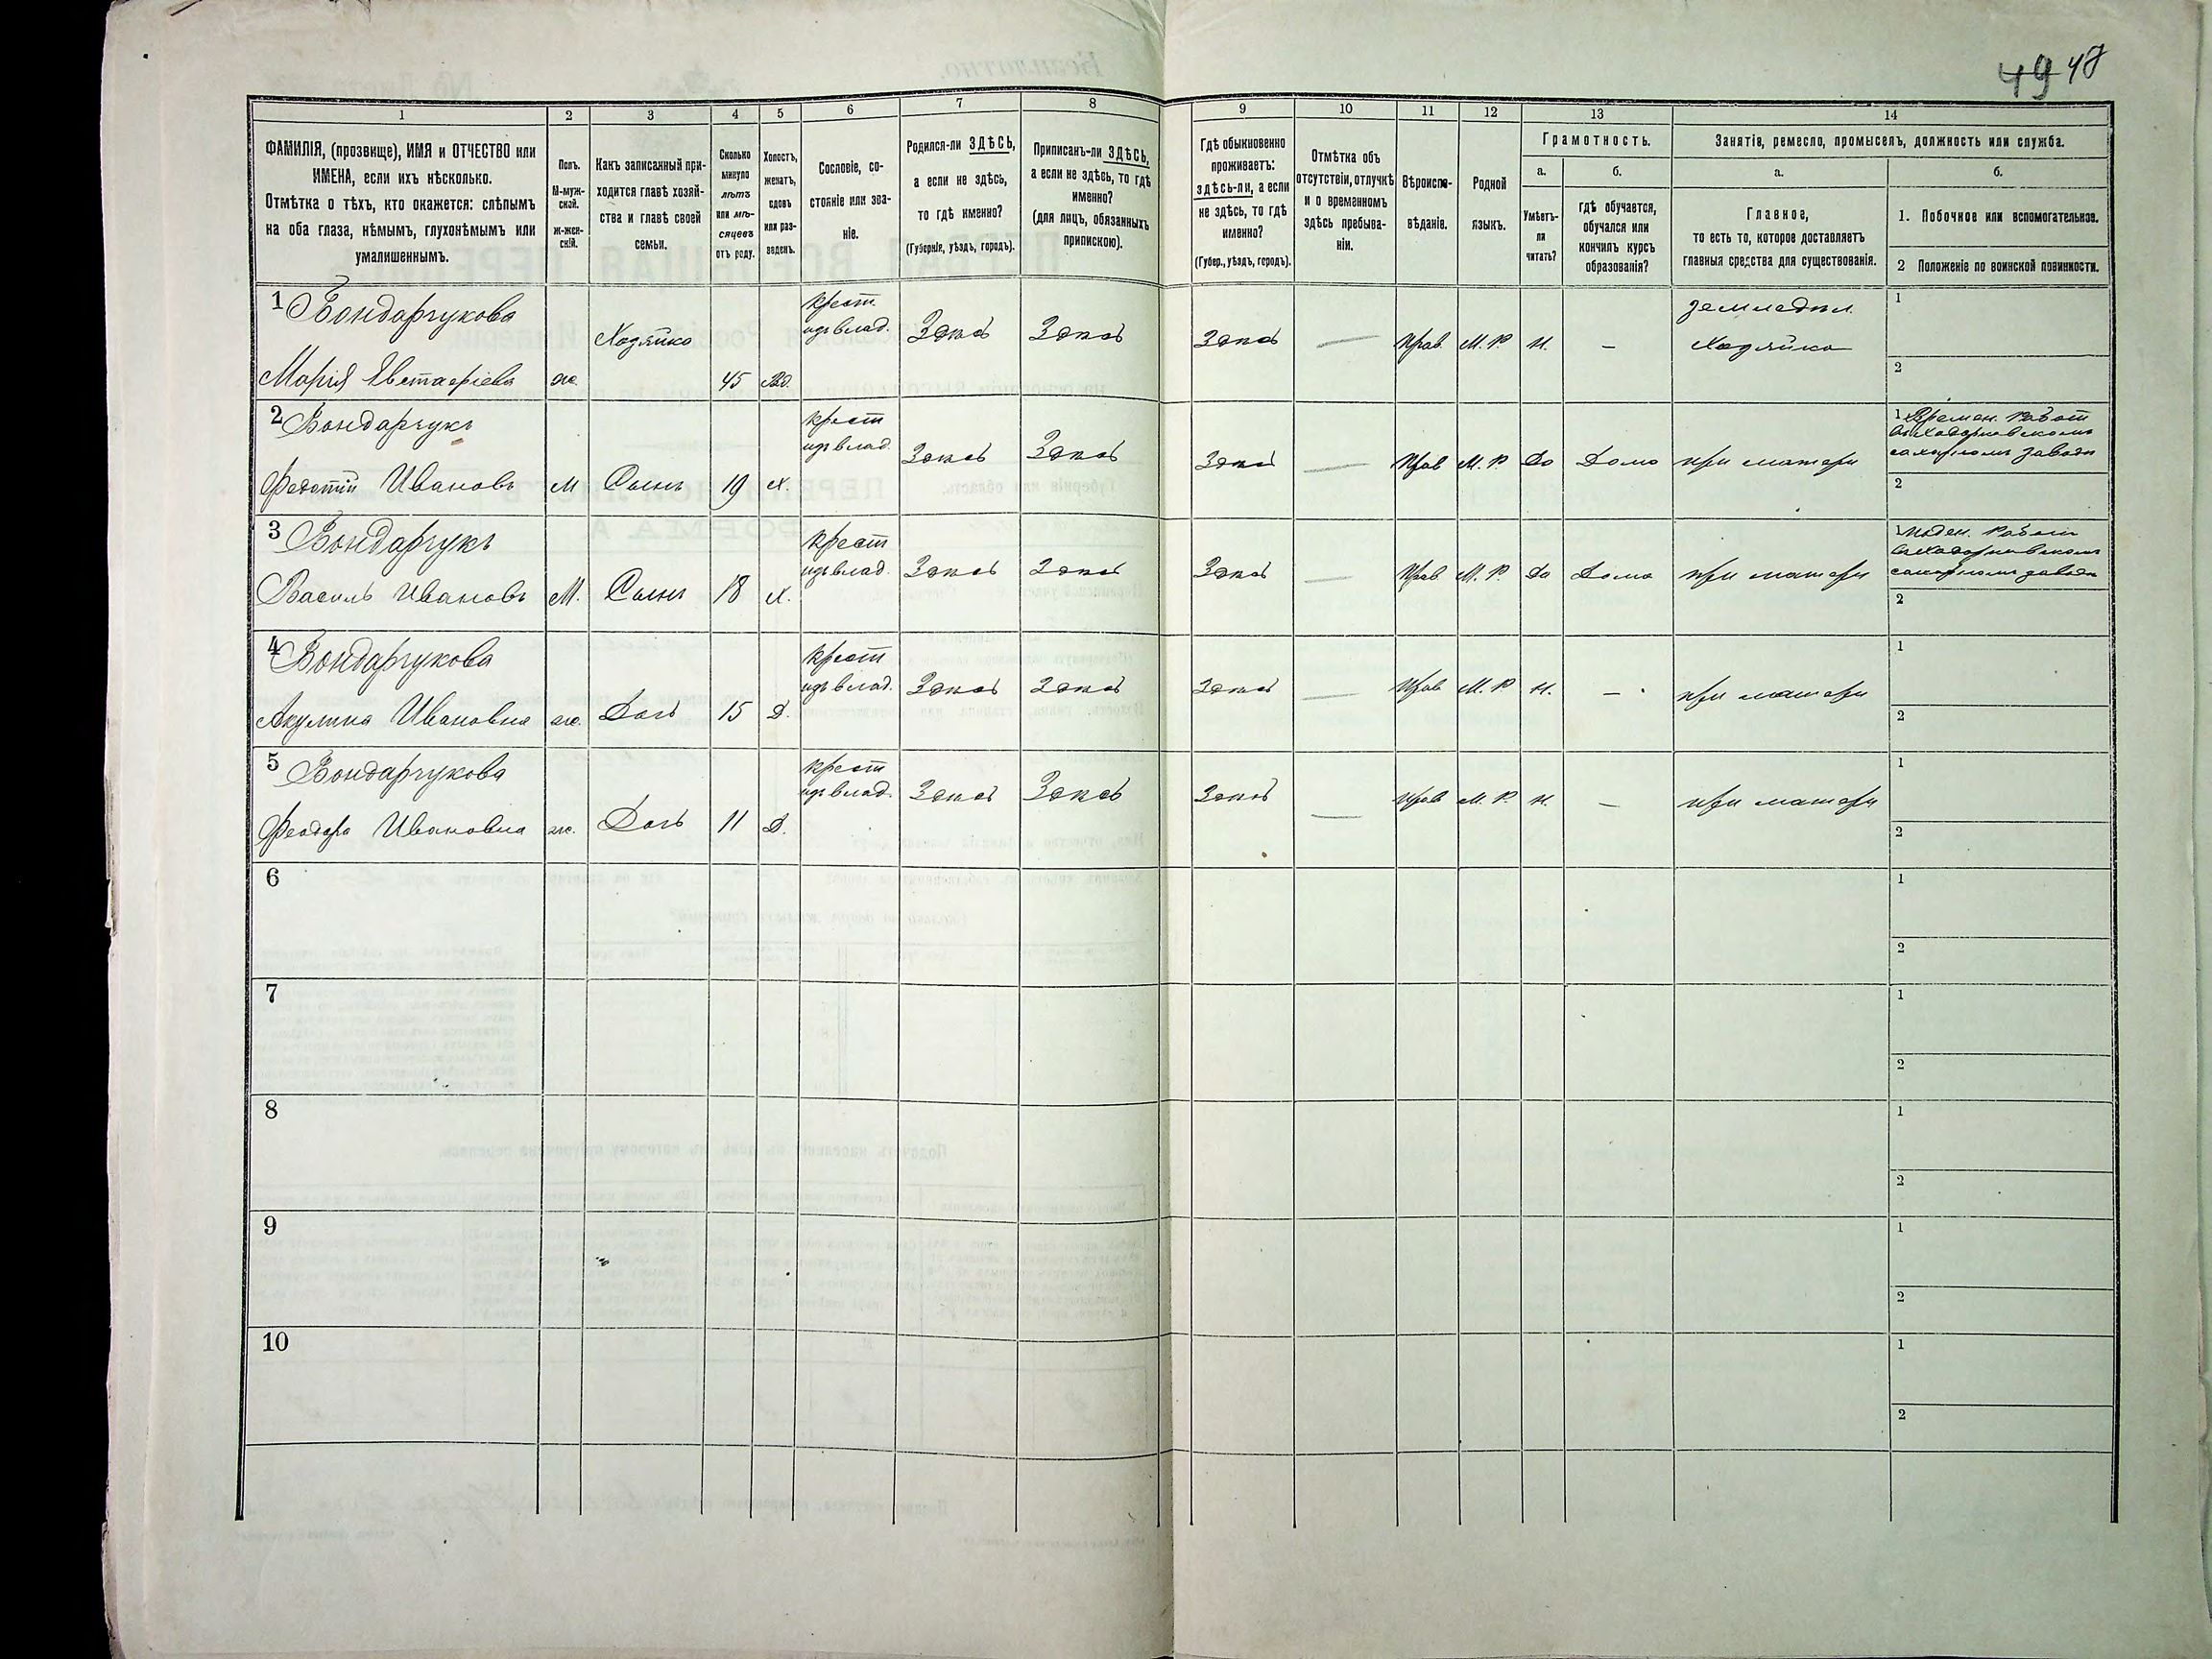 49 48
1 2 3 4 5 6 7 8 9 10 11 12 13 14
ФАМИЛІЯ, (прозвище), ИМЯ и ОТЧЕСТВО или
ИМЕНА, если ихъ нѣсколько.
Отмѣтка о тѣхъ, кто окажется: слѣпымъ
на оба глаза, нѣмымъ, глухонѣмымъ или
умалишеннымъ.
Полъ.
М-муж-
ской.
Ж-жен-
скій.
Какъ записанный при-
ходится главѣ хозяй-
ства и главѣ своей
семьи.
Сколько
минуло
лѣтъ
или мѣ-
сяцевъ
отъ роду.
Холостъ,
женатъ,
вдовъ
или раз-
веденъ.
Сословіе, со-
стояніе или зва-
ніе.
Родился-ли ЗДѢСЬ,
а если не здѣсь,
то гдѣ именно?
(Губернія, уѣздъ, городъ).
Приписанъ-ли ЗДѢСЬ,
а если не здѣсь, то гдѣ
именно?
(для лицъ, обязанныхъ
припискою).
Гдѣ обыкновенно
проживаетъ:
здѣсь-ли, а если
не здѣсь, то гдѣ
именно?
(Губер., уѣздъ, городъ).
Отмѣтка объ
отсутствіи, отлучкѣ
и о временномъ
здѣсь пребыва-
ніи.
Вѣроиспо-
вѣданіе.
Родной
языкъ.
Грамотность.
а.
Умѣетъ-
ли
читать?
б.
гдѣ обучается,
обучался или
кончилъ курсъ
образованія?
Занятіе, ремесло, промыселъ, должность или служба.
а.
Главное,
то есть то, которое доставляетъ
главныя средства для существованія.
б.
1. Побочное или вспомогательное.
2 Положеніе по воинской повинности.
1 Бондарчукова
Марія Евстафіева ж. Хозяйка 45 Вд.
крест.
изъ влад. Здѣсь Здѣсь Здѣсь — Прав. М. Р. Н. —
земледѣл.
Хозяйка
1
2
2 Бондарчукъ
Федотій Ивановъ М Сынъ 19 Х.
крест
изъ влад. Здѣсь Здѣсь Здѣсь — Прав М. Р. Да Дома при матери
1 Времен. работ
въ Ходорковскомъ
сахарномъ заводѣ
2
3 Бондарчукъ
Василь Ивановъ М. Сынъ 18 Х.
крест
изъ влад. Здѣсь Здѣсь Здѣсь — Прав М. Р. Да Дома при матери
1 Поден. работ
въ Ходорковскомъ
сахарномъ заводѣ
2
4 Бондарчукова
Акулина Ивановна ж. Дочь 15 Д.
крест
изъ влад. Здѣсь Здѣсь Здѣсь — Прав М. Р Н. — при матери
1
2
5 Бондарчукова
Феодора Ивановна ж. Дочь 11 Д.
крест
изъ влад. Здѣсь Здѣсь Здѣсь — Прав М. Р. Н. — при матери
1
2
6 1
2
7 1
2
8 1
2
9 1
2
10 1
2